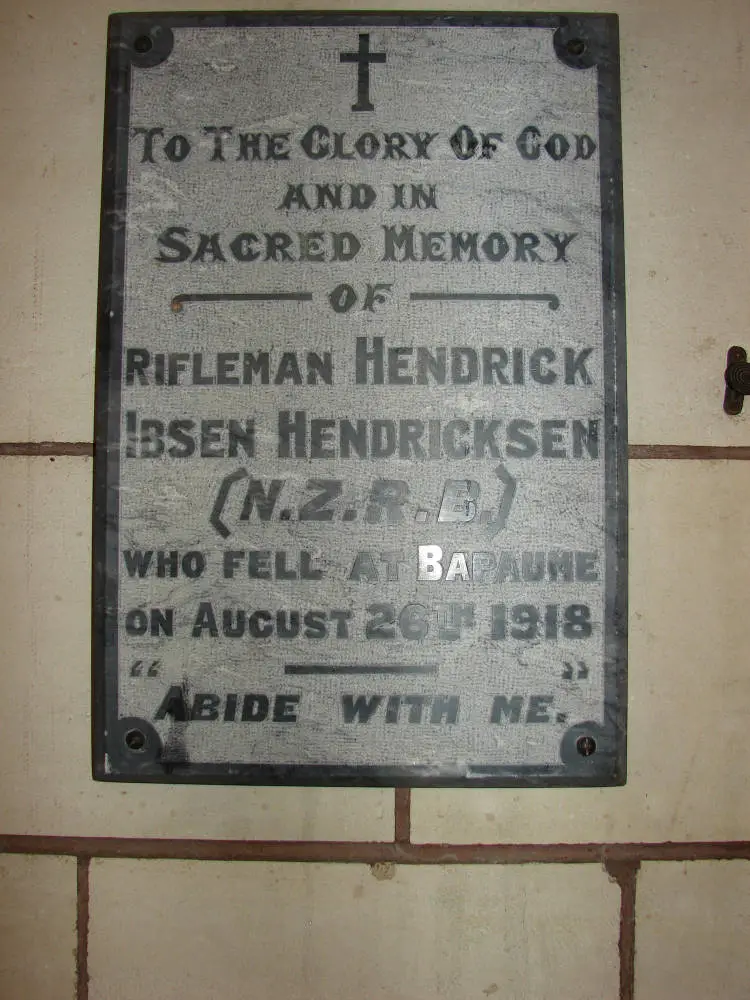 To The Glory Of God
and in
Sacred Memory
of
Rifleman Hendrick
Ibsen Hendricksen
(N.Z.R.B.)
who fell at Bapaume
on August 26th 1918
"Abide with me."